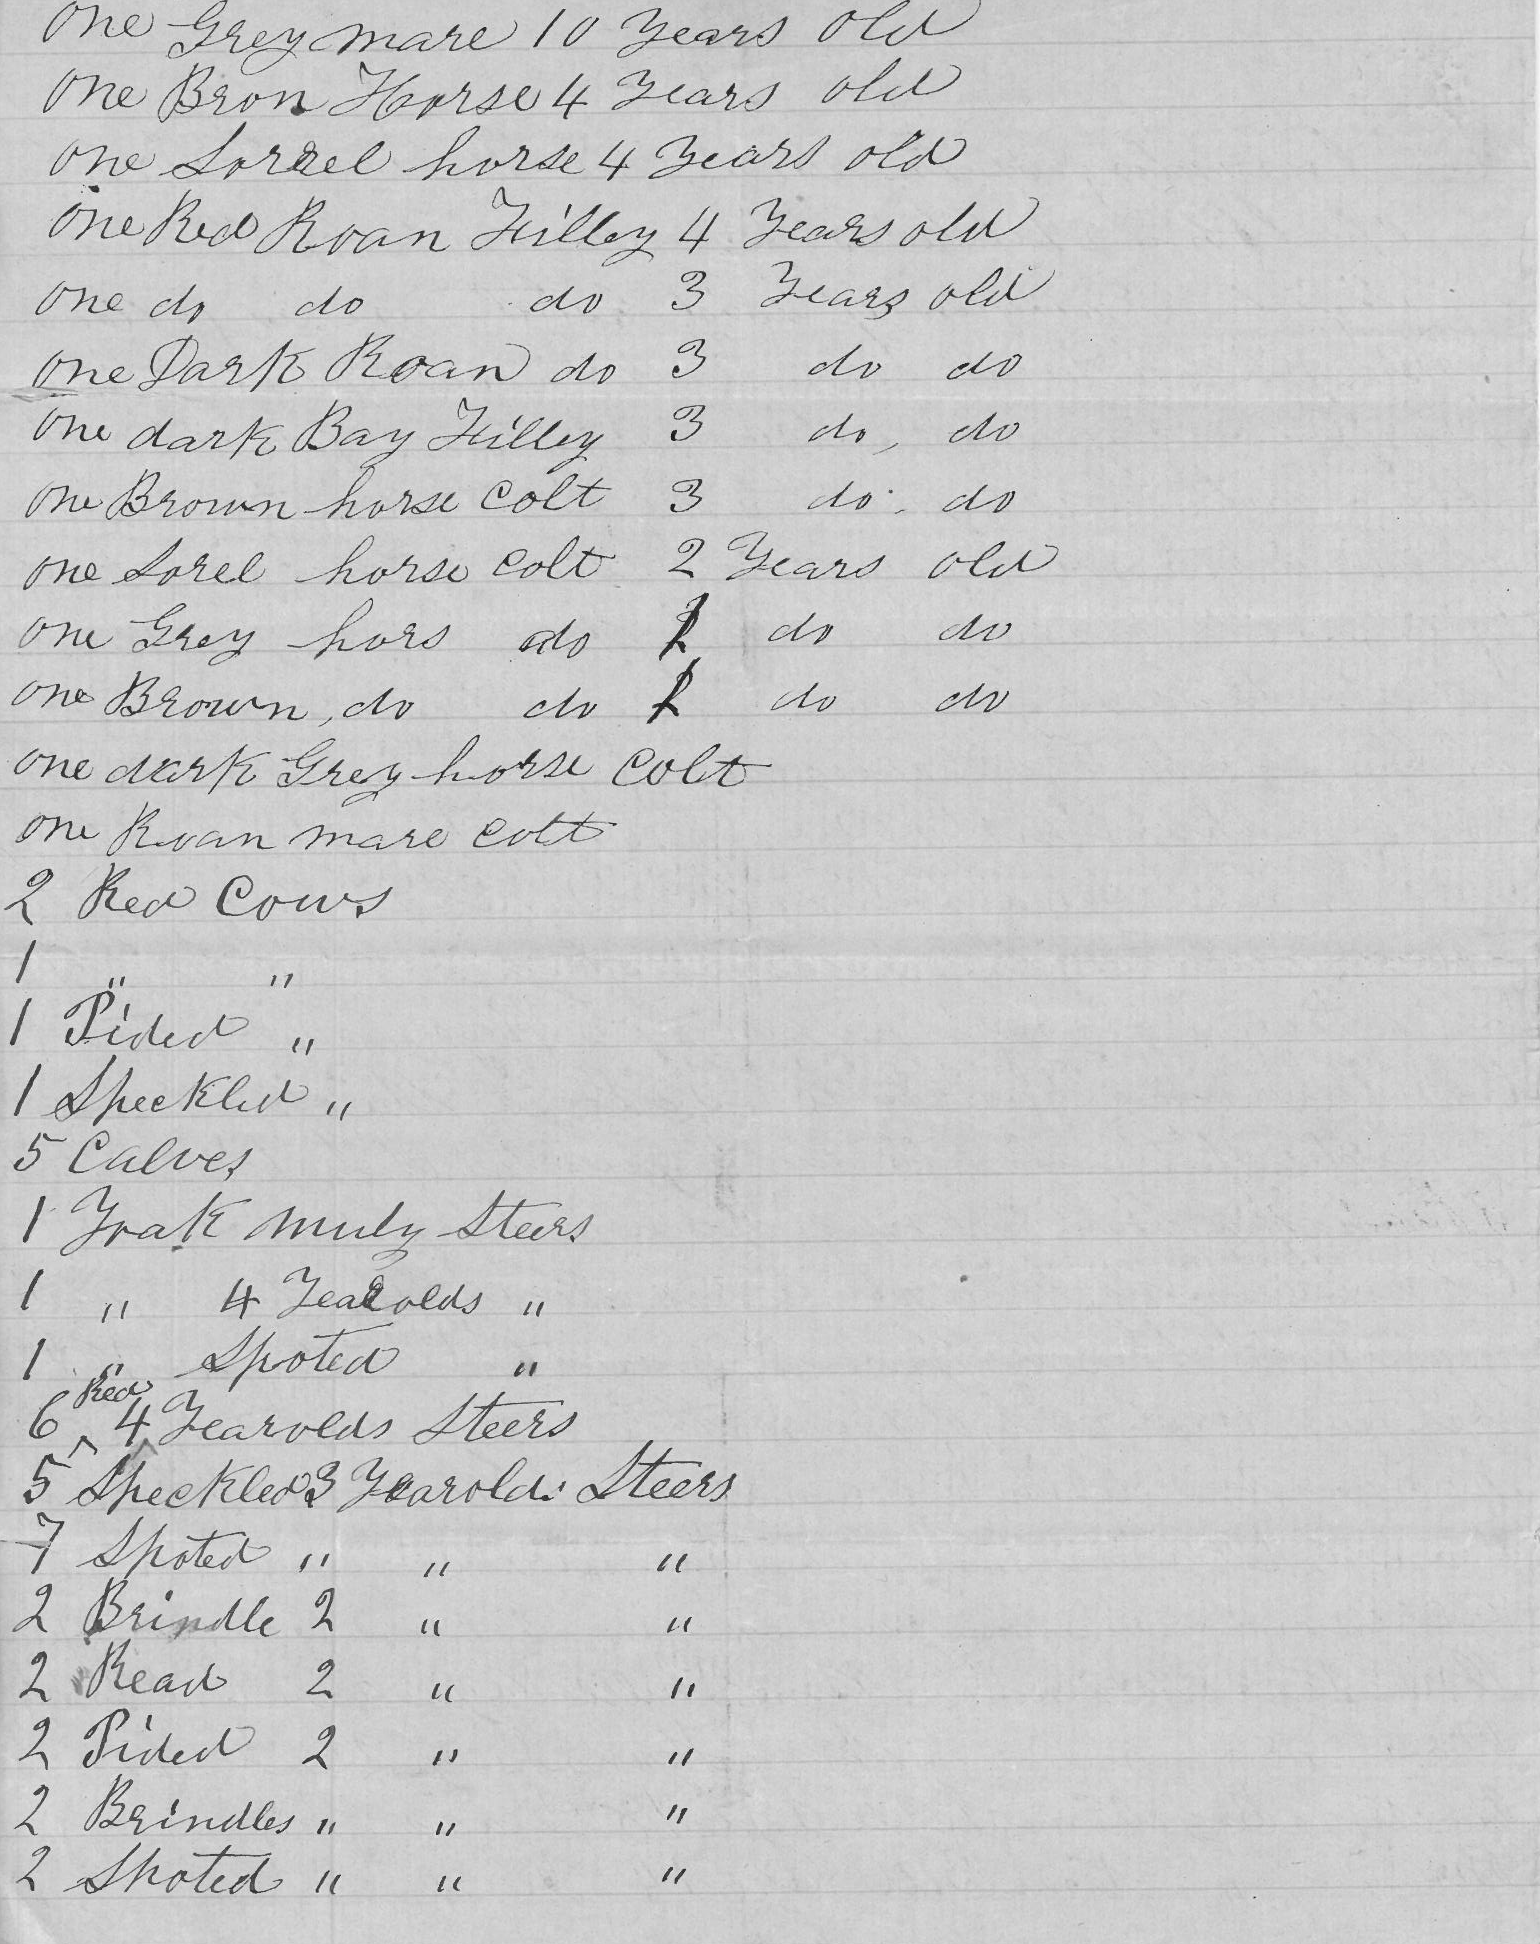 one Grey mare 10 Years old
one Bron Horse 4 Years old
one Sorrel horse 4 Years old
one Red Roan Filley 4 Years old
one do do do 3 Years old
one Dark Roan do 3 do do
one dark Bay Filley 3 do, do
one Brown horse Colt 3 do do
one Sorel horse Colt 2 Years old
one Grey hors do do do
one Brown, do do do do
one dark Grey horse Colt
one Roan mare Colt
2 Red Cows
1 " "
1 Pided "
1 Speckled "
5 Calves
1 Yoak muly Steers
1 " 4 Yearolds "
1 " Spoted "
6 Red 4 Yearolds Steers
5 Speckled 3 Yearolds Steers
7 Spoted " " "
2 Brindle 2 " "
2 Read 2 " "
2 Pided 2 " "
2 Brindles " " "
2 Spoted " " "